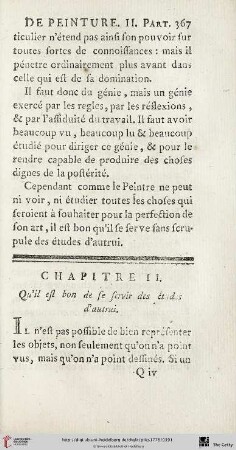 DE PEINTURE. II. PART. 367
ticulier n'étend pas ainsi son pouvoir sur
toutes sortes de connoissances : mais il
pénetre ordinairement plus avant dans
celle qui est de sa domination.
Il faut donc du génie, mais un génie
exercé par les regles, par les réflexions,
& par l'assiduité du travail. Il faut avoir
beaucoup vu, beaucoup lu & beaucoup
étudié pour diriger ce génie, & pour le
rendre capable de produire des choses
dignes de la postérité.
Cependant comme le Peintre ne peut
ni voir, ni étudier toutes les choses qui
seroient à souhaiter pour la perfection de
son art, il est bon qu'il se serve sans scru-
pule des études d'autrui.
CHAPITRE II.
Qu'il est bon de se servir des études
d'autrui.
IL n'est pas possible de bien représenter
les objets, non seulement qu'on n'a point
vus, mais qu'on n'a point dessinés. Si un
Q iv